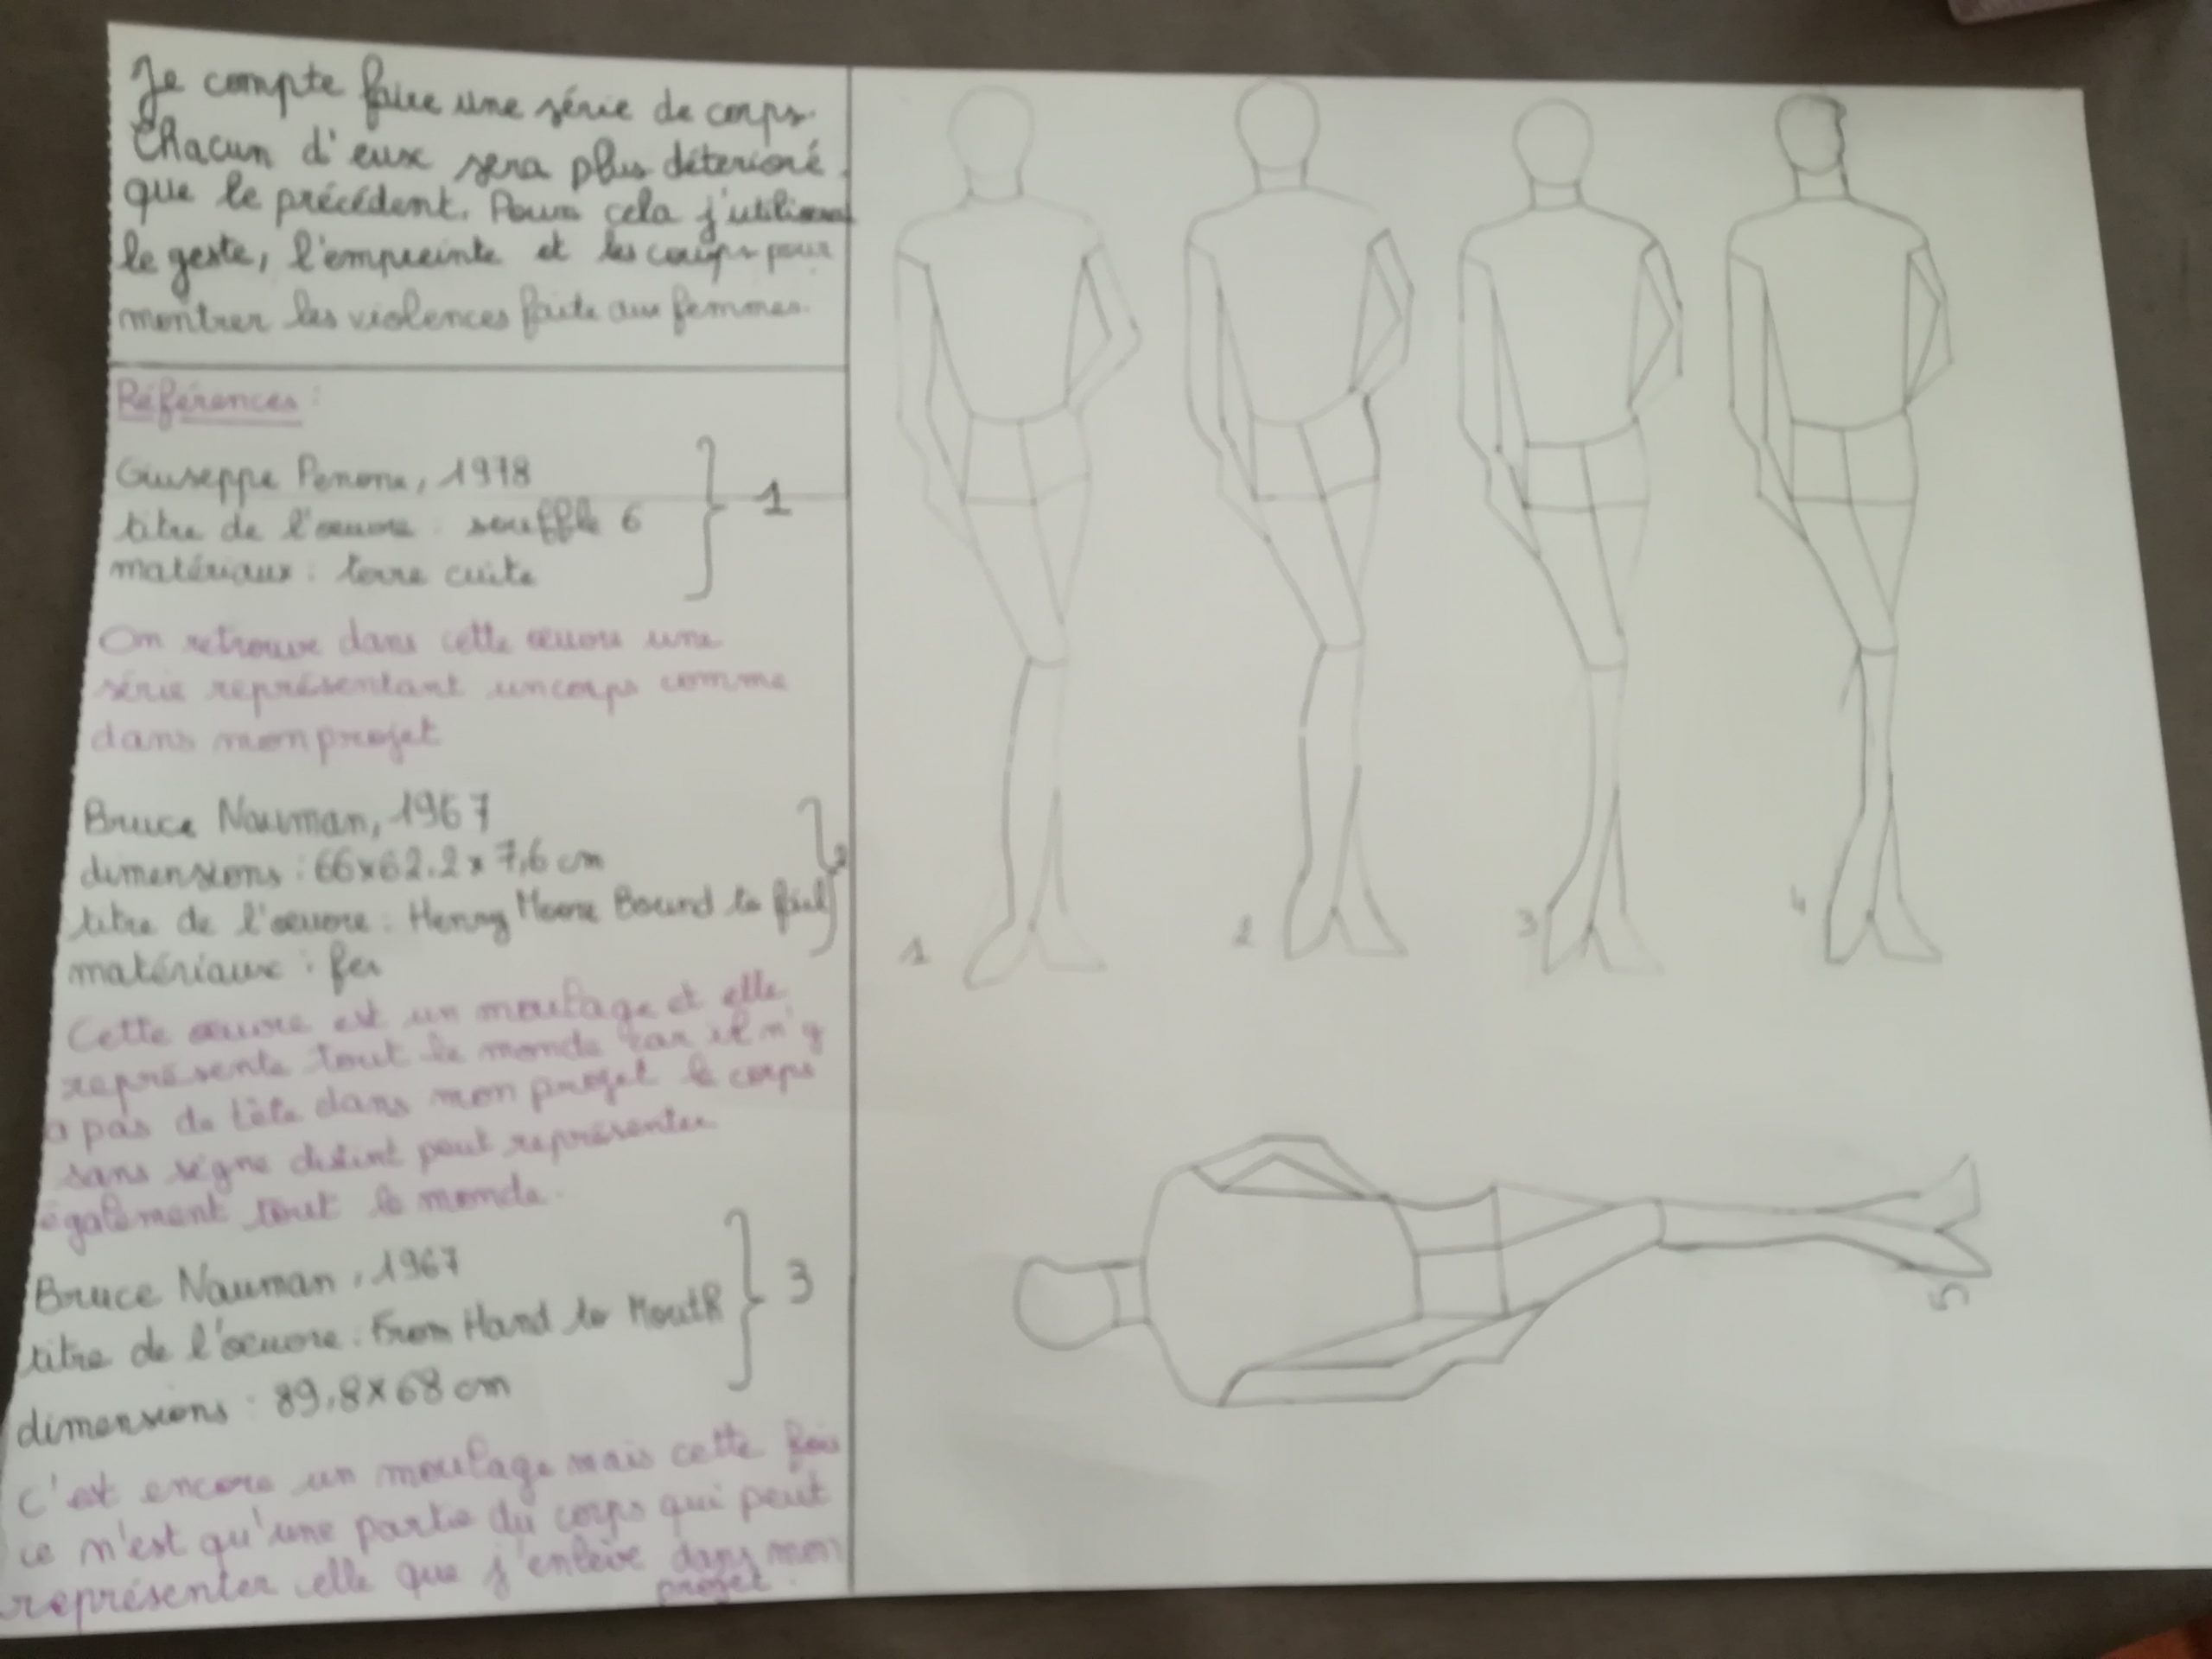 Je compte faire une série de corps.
Chacun d'eux sera plus déterioré
que le précédent. Pour cela j'utiliserai
le geste, l'empreinte et les coups pour
montrer les violences faite aux femmes.
Références :
Giuseppe Penone, 1978
titre de l'œuvre : souffle 6
matériaux : terre cuite
1
On retrouve dans cette œuvre une
série représentant un corps comme
dans mon projet
Bruce Nauman, 1967
dimensions : 66x62.2x7,6 cm
titre de l'œuvre : Henry Moore Bound to fail
matériaux : fer
2
Cette œuvre est un moulage et elle
représente tout le monde car il n'y
a pas de tête dans mon projet le corps
sans signe distint peut représenter
également tout le monde.
Bruce Nauman, 1967
titre de l'œuvre : From Hand to Mouth
dimensions : 89,8x68 cm
3
C'est encore un moulage mais cette fois
ce n'est qu'une partie du corps qui peut
représenter celle que j'enlève dans mon
projet.
1
2
3
4
5